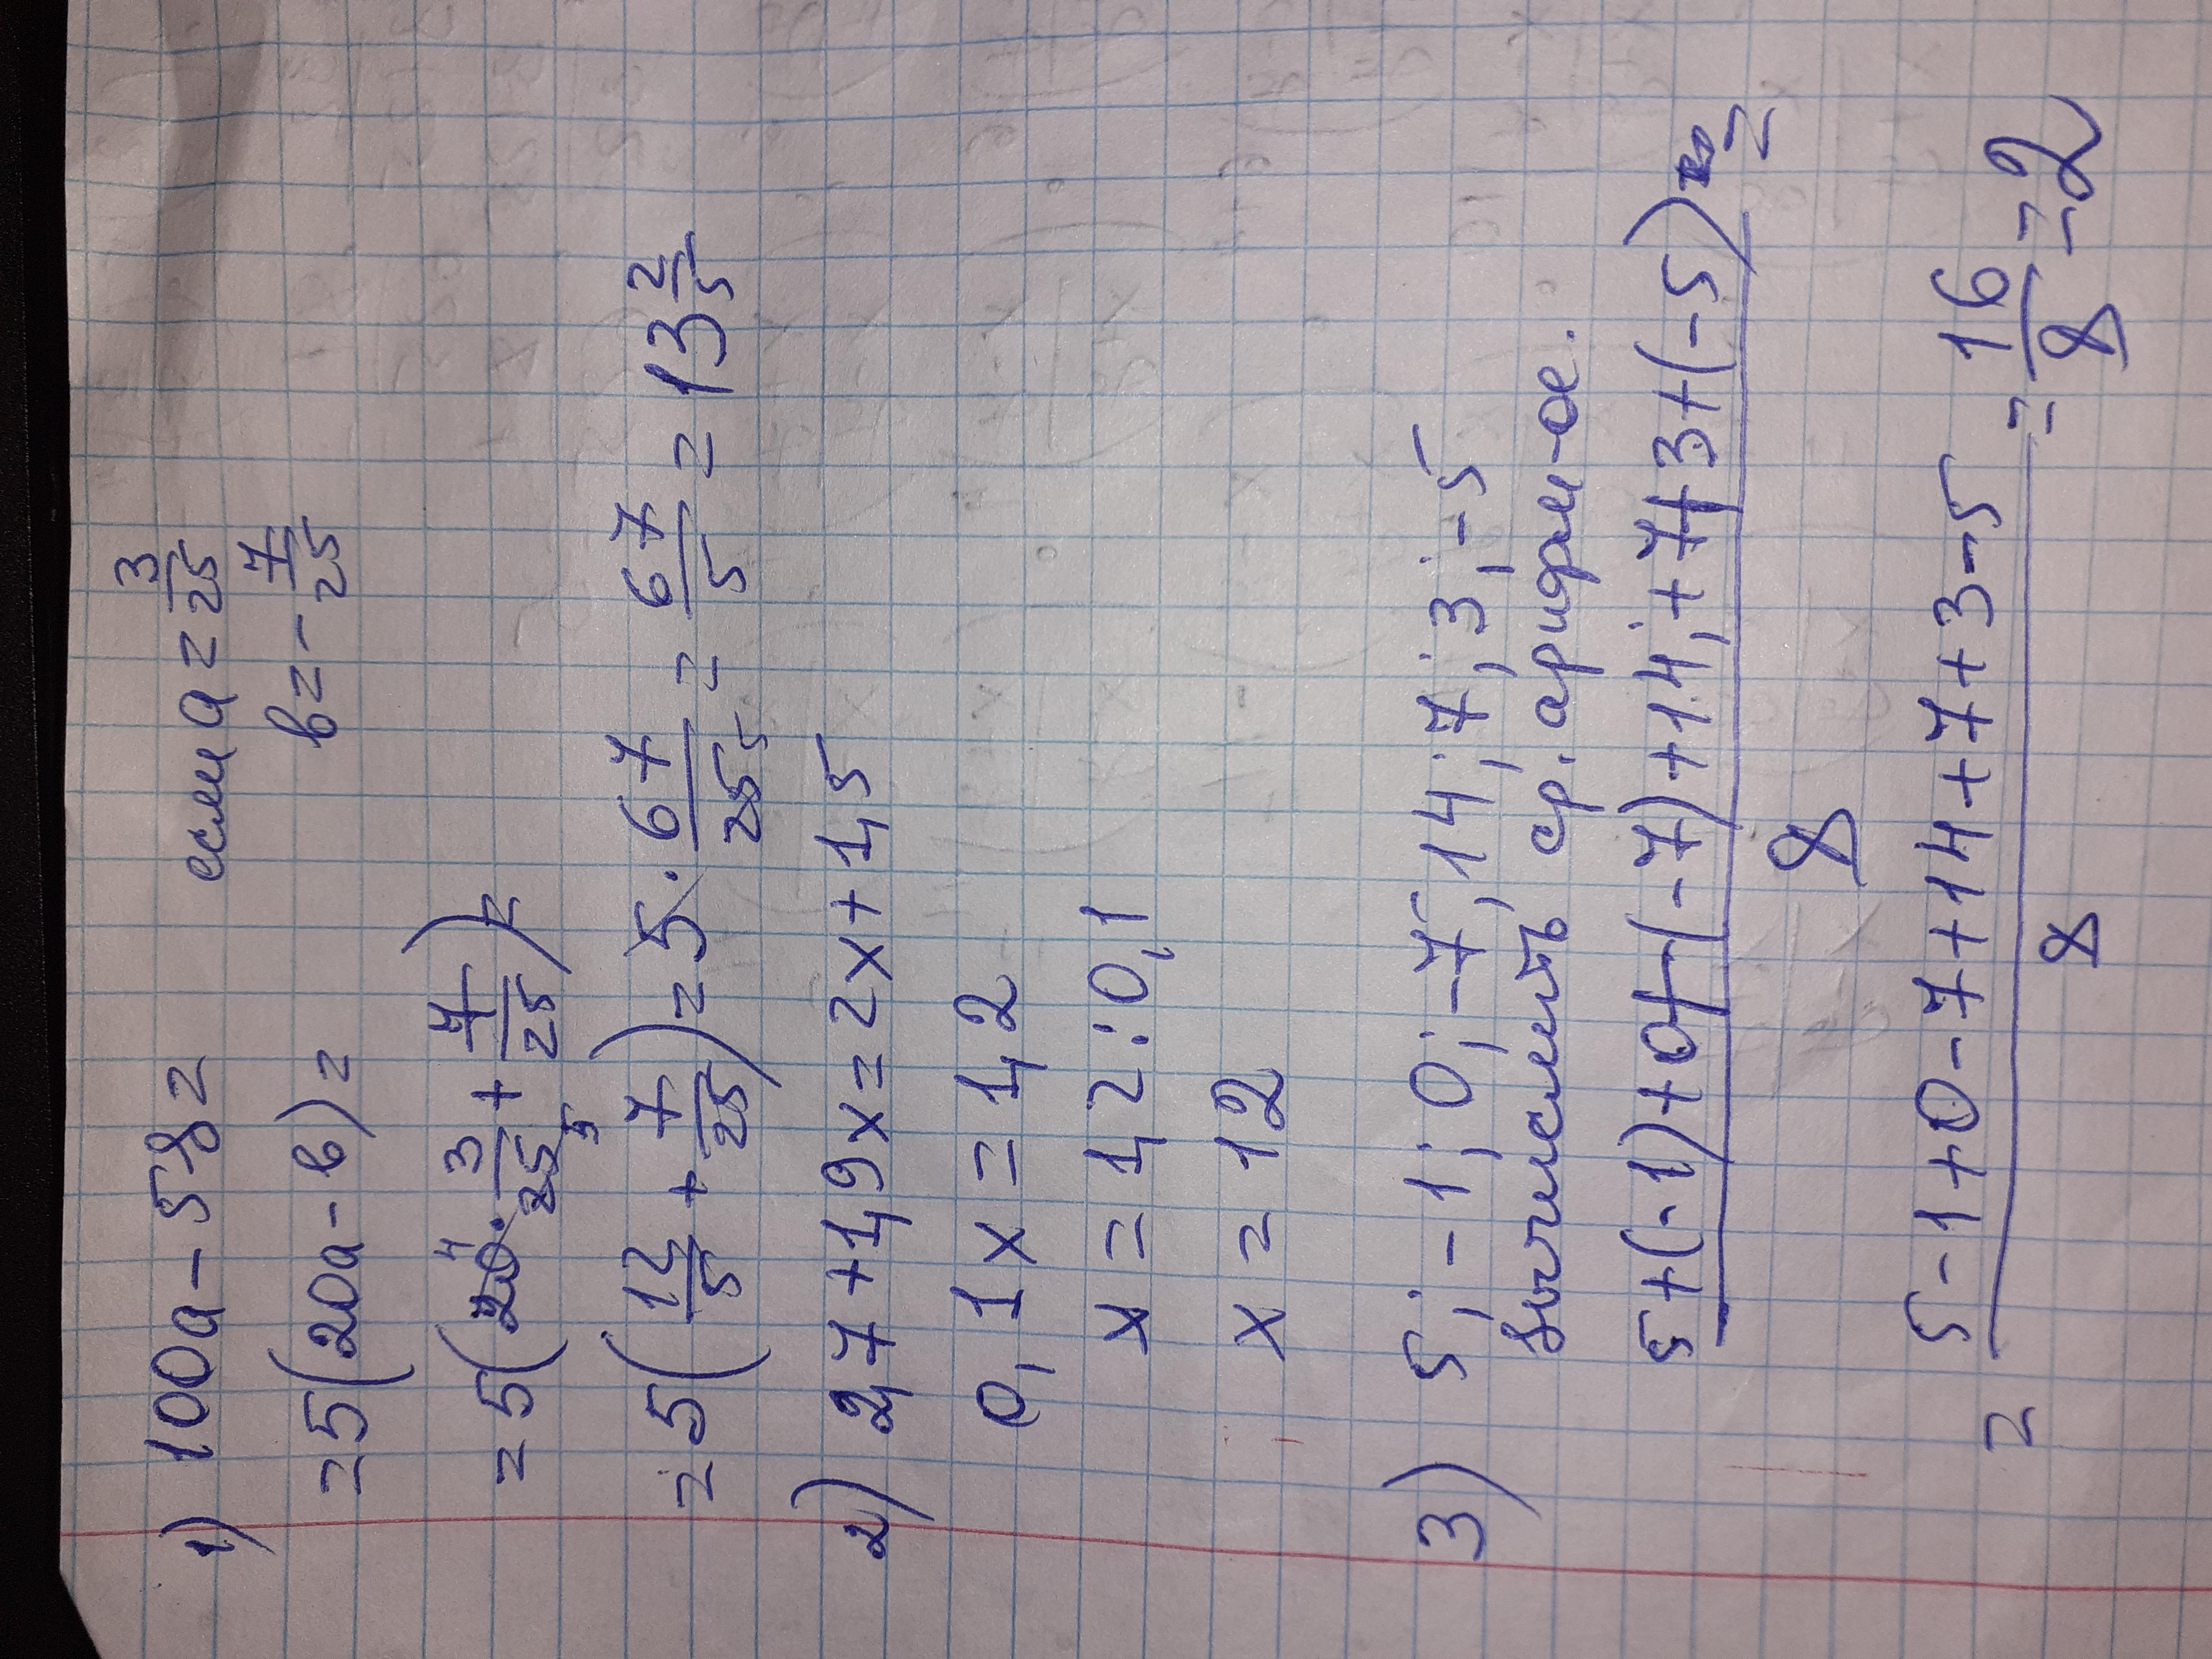 1) 100a - 5в = если a = 3/25
= 5(20a - в) = в = - 7/25
= 5(20 4 · 3/25 5 + 7/25) =
= 5(12/5 + 7/25) = 5 · 67/25 5 = 67/5 = 13 2/5
2) 2,7 + 1,9x = 2x + 1,5
0,1x = 1,2
x = 1,2 : 0,1
x = 12
3) 5; -1; 0; -7; 14; 7; 3; -5
вычислить ср. арифм-ое.
5+(-1)+0+(-7)+14;+7+3+(-5) / 8 =
= 5-1+0-7+14+7+3-5 / 8 = 16/8 = 2